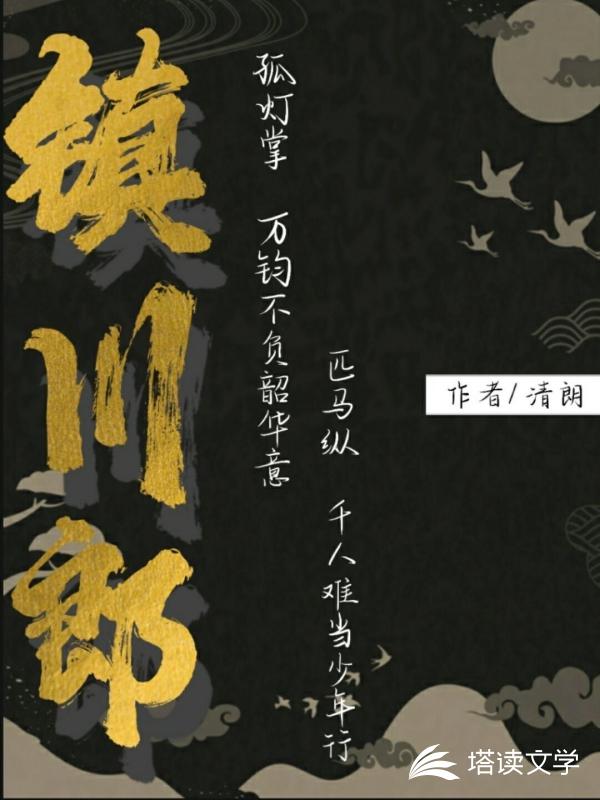 镇川郎
孤灯掌 万钧不负韶华意
匹马纵 千人难当少年行
作者/清朗
塔读文学